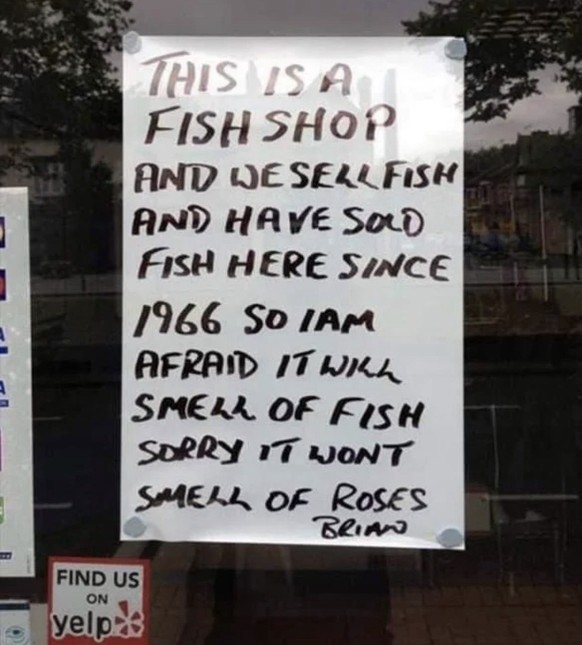 THIS IS A
FISH SHOP
AND WE SELL FISH
AND HAVE SOLD
FISH HERE SINCE
1966 SO I AM
AFRAID IT WILL
SMELL OF FISH
SORRY IT WONT
SMELL OF ROSES
BRIAN
FIND US
ON
yelp